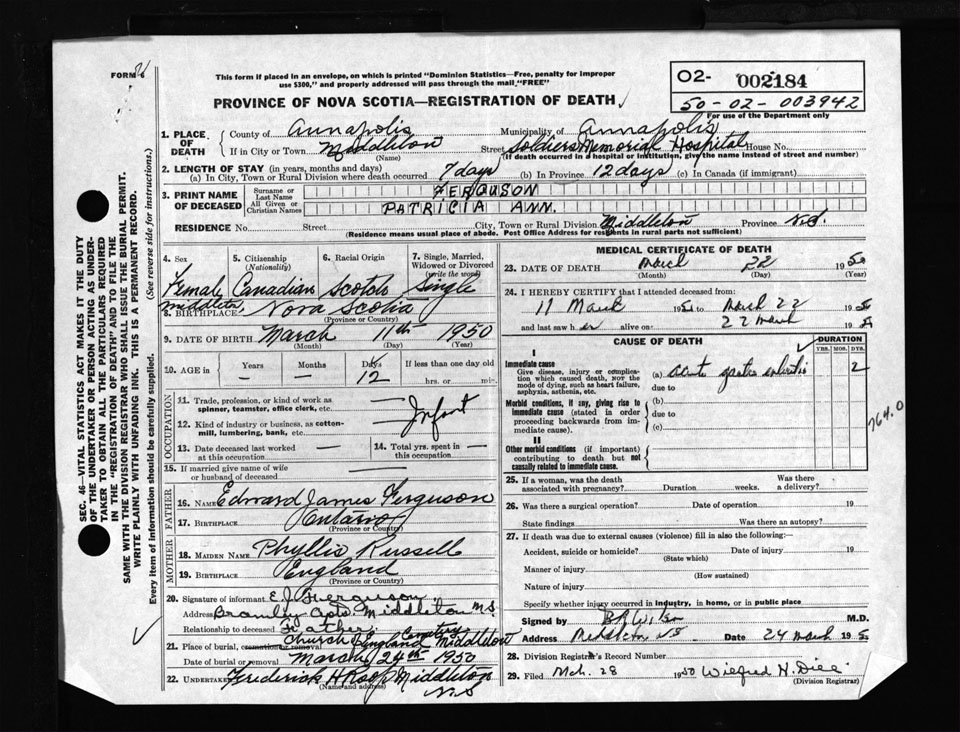 FORM 6
This form if placed in an envelope, on which is printed "Dominion Statistics—Free, penalty for improper
use $300," and properly addressed will pass through the mail "FREE"
PROVINCE OF NOVA SCOTIA—REGISTRATION OF DEATH
02- 002184
50-02-003942
For use of the Department only
1. PLACE OF DEATH
County of Annapolis Municipality of Annapolis
If in City or Town Middleton (Name) Street Soldiers Memorial Hospital House No.
(If death occurred in a hospital or institution, give the name instead of street and number)
2. LENGTH OF STAY (in years, months and days)
(a) In City, Town or Rural Division where death occurred 7 days (b) In Province 12 days (c) In Canada (if immigrant)
3. PRINT NAME OF DECEASED
Surname or Last Name FERGUSON
All Given or Christian Names PATRICIA ANN.
RESIDENCE No. Street City, Town or Rural Division Middleton Province N.S.
(Residence means usual place of abode. Post Office Address for residents in rural parts not sufficient)
4. Sex Female
5. Citizenship (Nationality) Canadian
6. Racial Origin Scotch
7. Single, Married, Widowed or Divorced (write the word) Single
8. BIRTHPLACE Middleton, Nova Scotia
(Province or Country)
9. DATE OF BIRTH March 11th 1950
(Month) (Day) (Year)
10. AGE in Years — Months — Days 12 If less than one day old
hrs. or min.
OCCUPATION
11. Trade, profession, or kind of work as spinner, teamster, office clerk, etc. Infant
12. Kind of industry or business, as cotton-mill, lumbering, bank, etc.
13. Date deceased last worked at this occupation —
14. Total yrs. spent in this occupation —
15. If married give name of wife or husband of deceased —
FATHER
16. NAME Edward James Ferguson
17. BIRTHPLACE Ontario
(Province or Country)
MOTHER
18. MAIDEN NAME Phyllis Russell
19. BIRTHPLACE England
(Province or Country)
20. Signature of informant E.J. Ferguson
Address Apts. Middleton N.S.
Relationship to deceased Father
21. Place of burial, cremation or removal Church of England Cemetery Middleton
Date of burial or removal March 24th 1950
22. Undertaker Frederick Middleton
(Name and address) N.S
MEDICAL CERTIFICATE OF DEATH
23. DATE OF DEATH March 22 1950
(Month) (Day)
24. I HEREBY CERTIFY that I attended deceased from:
11 March 1950 to March 22 1950
and last saw her alive on 22 March 1950
CAUSE OF DEATH
DURATION
YRS. MOS. DYS.
I
Immediate cause
Give disease, injury or complication which caused death, NOT the mode of dying, such as heart failure, asphyxia, asthenia, etc.
(a) Acute gastro enteritis 2
due to
Morbid conditions, if any, giving rise to immediate cause (stated in order proceeding backwards from immediate cause).
(b)
due to
(c)
764.0
II
Other morbid conditions (if important) contributing to death but not causally related to immediate cause.
25. If a woman, was the death associated with pregnancy? Duration weeks. Was there a delivery?
26. Was there a surgical operation? Date of operation 19
State findings Was there an autopsy?
27. If death was due to external causes (violence) fill in also the following:—
Accident, suicide or homicide? Date of injury 19
(State which)
Manner of injury
(How sustained)
Nature of injury
Specify whether injury occurred in industry, in home, or in public place
Signed by M.D.
Address NS Date 24 March 1950
28. Division Registrar's Record Number
29. Filed Mch. 28 1950 Wilfred H.
(Division Registrar)
SEC. 46—VITAL STATISTICS ACT MAKES IT THE DUTY
OF THE UNDERTAKER OR PERSON ACTING AS UNDER-
TAKER TO OBTAIN ALL THE PARTICULARS REQUIRED
IN THE "REGISTRATION OF DEATH" AND TO FILE THE
SAME WITH THE DIVISION REGISTRAR WHO SHALL ISSUE THE BURIAL PERMIT.
WRITE PLAINLY WITH UNFADING INK. THIS IS A PERMANENT RECORD.
Every item of information should be carefully supplied. (See reverse side for instructions.)